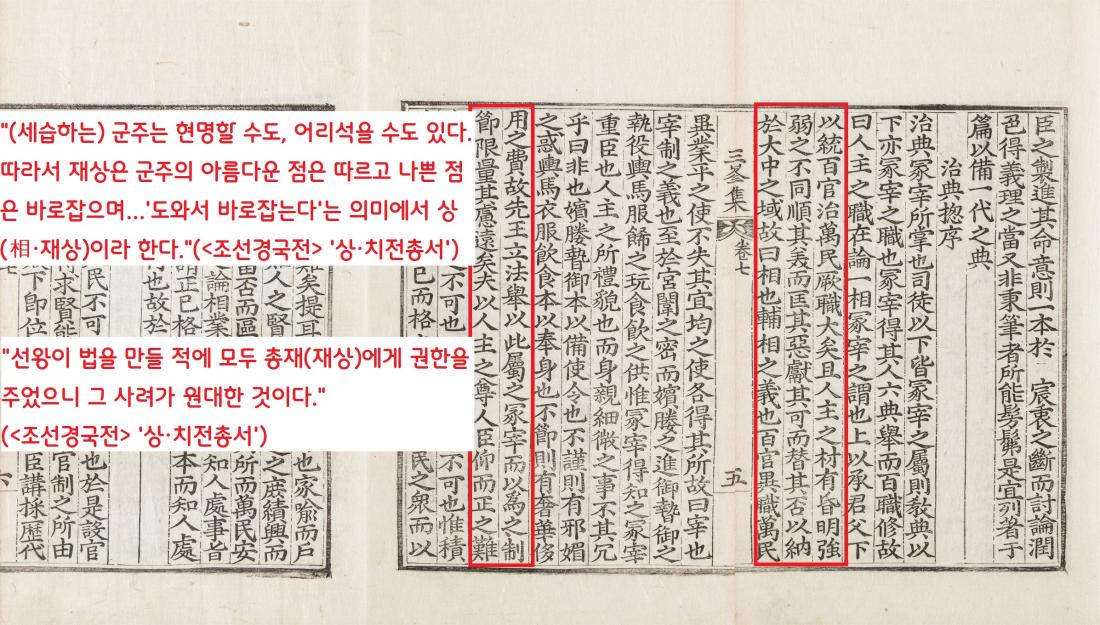 臣之製進其命意則一本於 宸衷之斷而討論潤
色得義理之當又非秉筆者所能髣髴是宜列著于
篇以備一代之典
治典摠序
治典冢宰所掌也司徒以下皆冢宰之屬則敎典以
下亦冢宰之職也冢宰得其人六典擧而百職修故
曰人主之職在論一相冢宰之謂也上以承君父下
以統百官治萬民厥職大矣且人主之材有昏明強
弱之不同順其美而匡其惡獻其可而替其否以納
於大中之域故曰相也輔相之義也百官異職萬民
三峯集 卷七 五
異業平之使不失其宜均之使各得其所故曰宰也
宰制之義也至於宮闈之密而嬪媵之進御贄御之
執役輿馬服飾之玩食飮之供惟冢宰得知之冢宰
重臣也人主之所禮貌也而身親細微之事不其冗
乎曰非也嬪媵贄御本以備使令也不謹則有邪媚
之惑輿馬衣服飮食本以奉身也不節則有奢華侈
用之費故先王立法擧以此屬之冢宰而以爲之制
節限量其慮遠矣夫以人主之尊人臣仰而正之難
不可也 不可也惟積
已而格 民之衆而以
"(세습하는) 군주는 현명할 수도, 어리석을 수도 있다.
따라서 재상은 군주의 아름다운 점은 따르고 나쁜 점
은 바로잡으며...'도와서 바로잡는다'는 의미에서 상
(相·재상)이라 한다."(<조선경국전> '상·치전총서')
"선왕이 법을 만들 적에 모두 총재(재상)에게 권한을
주었으니 그 사려가 원대한 것이다."
(<조선경국전> '상·치전총서')
矣提耳 也家喩而戶
人之賢 之庶績興而
當否而區 所而萬民安
論相業 知人處事旨
謂正已格 本而知人處
也故於
民不可 也於是設官
求賢能 官制之所由
下卽位 臣講採歷代